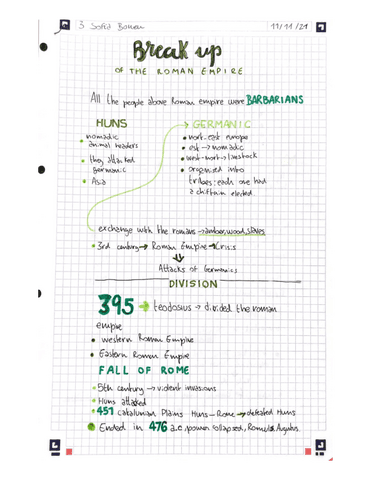 3 Sofia Bonan 11/11/21
Break up
OF THE ROMAN EMPIRE
All the people above Roman empire were BARBARIANS
HUNS
• nomadic
animal headers
• they attacked
germanic
• Asia
GERMANIC
• nort-east europe
• est → nomadic
• west-nort → limstock
• organised into
tribes: each one had
a chiftain elected
exchange with the romans → amber, wood, slaves
• 3rd century → Roman Empire → Crisis
Attacks of Germanics
DIVISION
395 → teodosius → divided the roman
empire
• western Roman Empire
• Eastern Roman Empire
FALL OF ROME
• 5th century → violent invasions
• Huns attaked
• 451 catalunian Plains Huns - Rome → defeated Huns
• Ended in 476 a.c, power collapsed, Romolus Augustus.